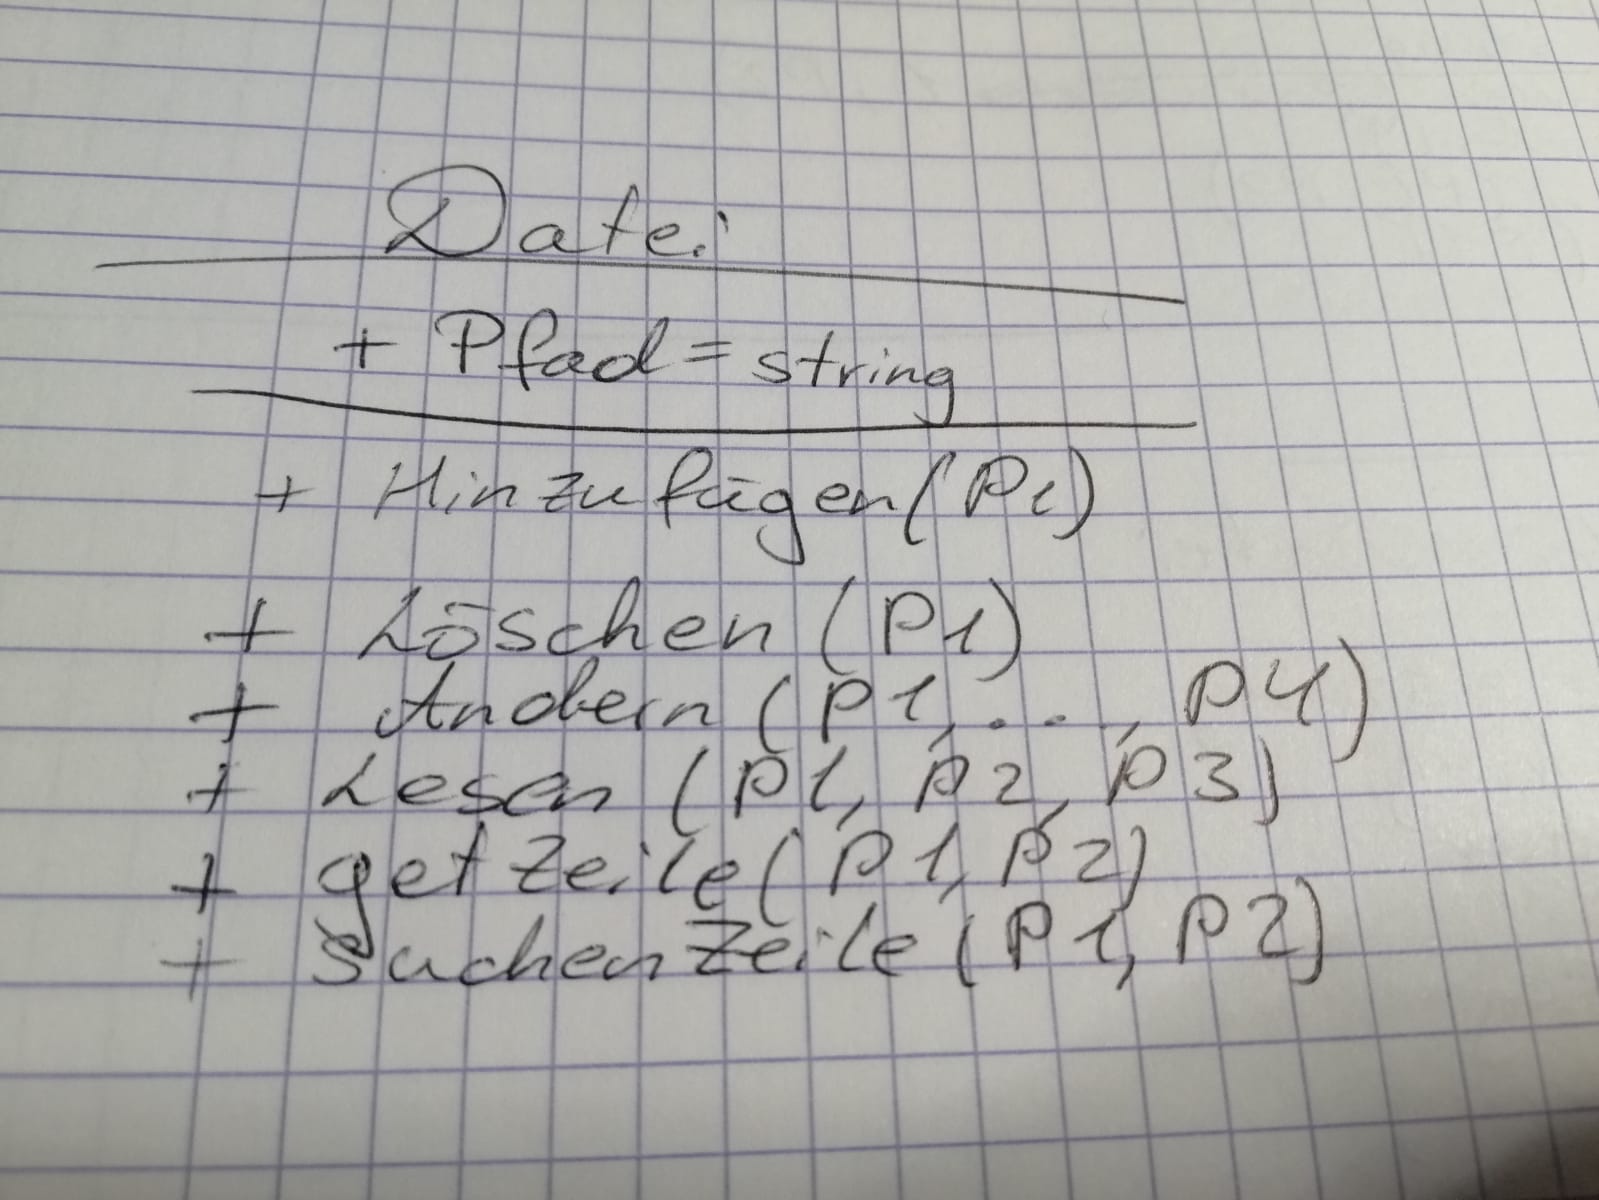 Datei
+ Pfad = string
+ Hinzufügen (P1)
+ Löschen (P1)
+ Ändern (P1, ..., P4)
+ Lesen (P1, P2, P3)
+ getZeile (P1, P2)
+ suchenZeile (P1, P2)